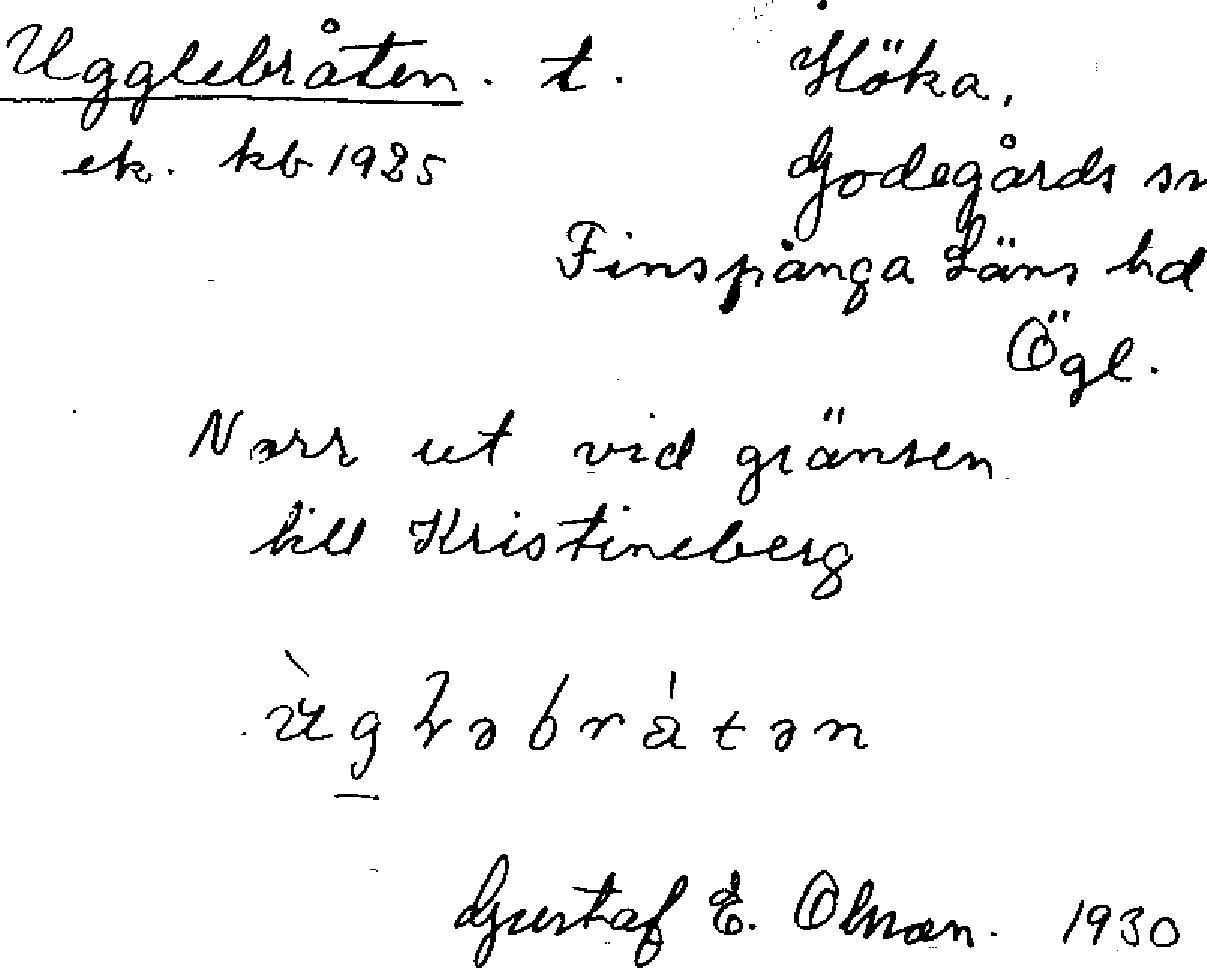 Ugglebråten. t. Höka,
ek. kb 1925 Godegårds sn
Finspånga Läns hd
Ögl.
Norr ut vid gränsen
till Kristineberg
Gustaf E. Olsson. 1930